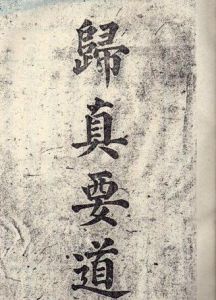 歸真要道